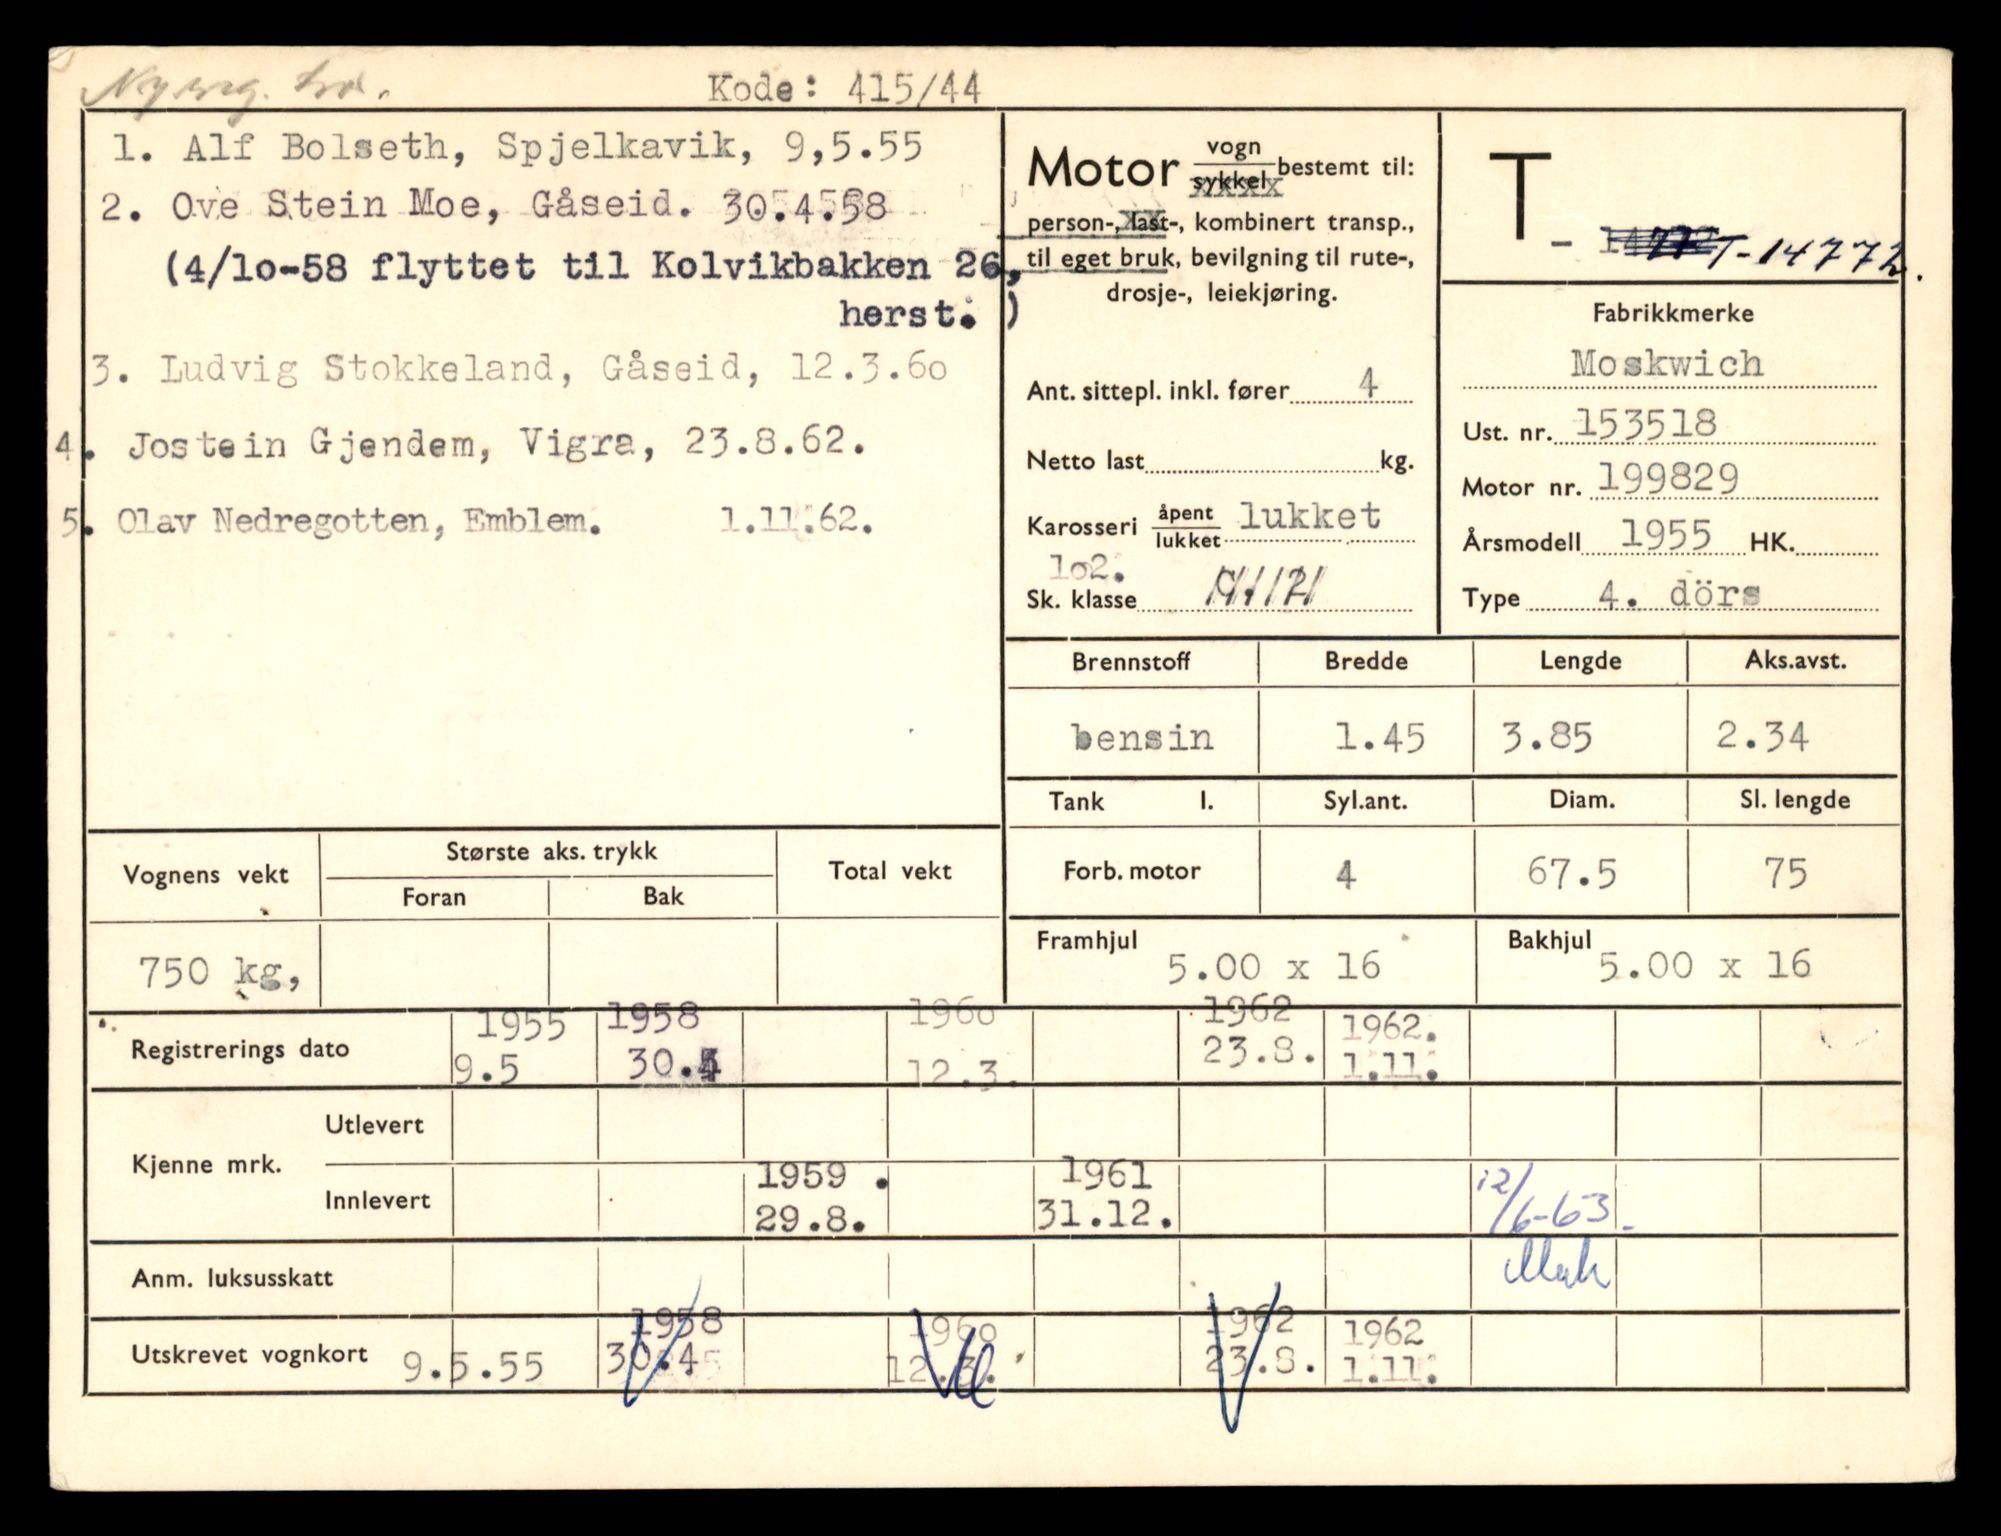 Kode: 415/44
1. Alf Bolseth, Spjelkavik, 9,5.55
2. Ove Stein Moe, Gåseid. 30.4.58
(4/1o-58 flyttet til Kolvikbakken 26,
herst. )
3. Ludvig Stokkeland, Gåseid, 12.3.6o
4. Jostein Gjendem, Vigra, 23.8.62.
5. Olav Nedregotten, Emblem. 1.11.62.
Motor vogn sykkel bestemt til:
person-, last-, kombinert transp.,
til eget bruk, bevilgning til rute-,
drosje-, leiekjøring.
Ant. sittepl. inkl. fører 4
Netto last kg.
Karosseri åpent lukket lukket
1o2.
Sk. klasse
T
- T-14772.
Fabrikkmerke
Moskwich
Ust. nr. 153518
Motor nr. 199829
Årsmodell 1955 HK.
Type 4. dörs
Brennstoff Bredde Lengde Aks.avst.
bensin 1.45 3.85 2.34
Tank l. Syl.ant. Diam. Sl. lengde
Forb. motor 4 67.5 75
Framhjul 5.00 x 16 Bakhjul 5.00 x 16
Vognens vekt Største aks. trykk Total vekt
Foran Bak
750 kg,
1955 1958 196o 1962 1962.
Registrerings dato 9.5 30.4 12.3. 23.8. 1.11.
Kjenne mrk.
Utlevert
Innlevert
1959 . 1961
29.8. 31.12. 12/6-63.
Anm. luksusskatt
1958 196o 1962 1962
Utskrevet vognkort 9.5.55 30.4 12.3. 23.8. 1.11.